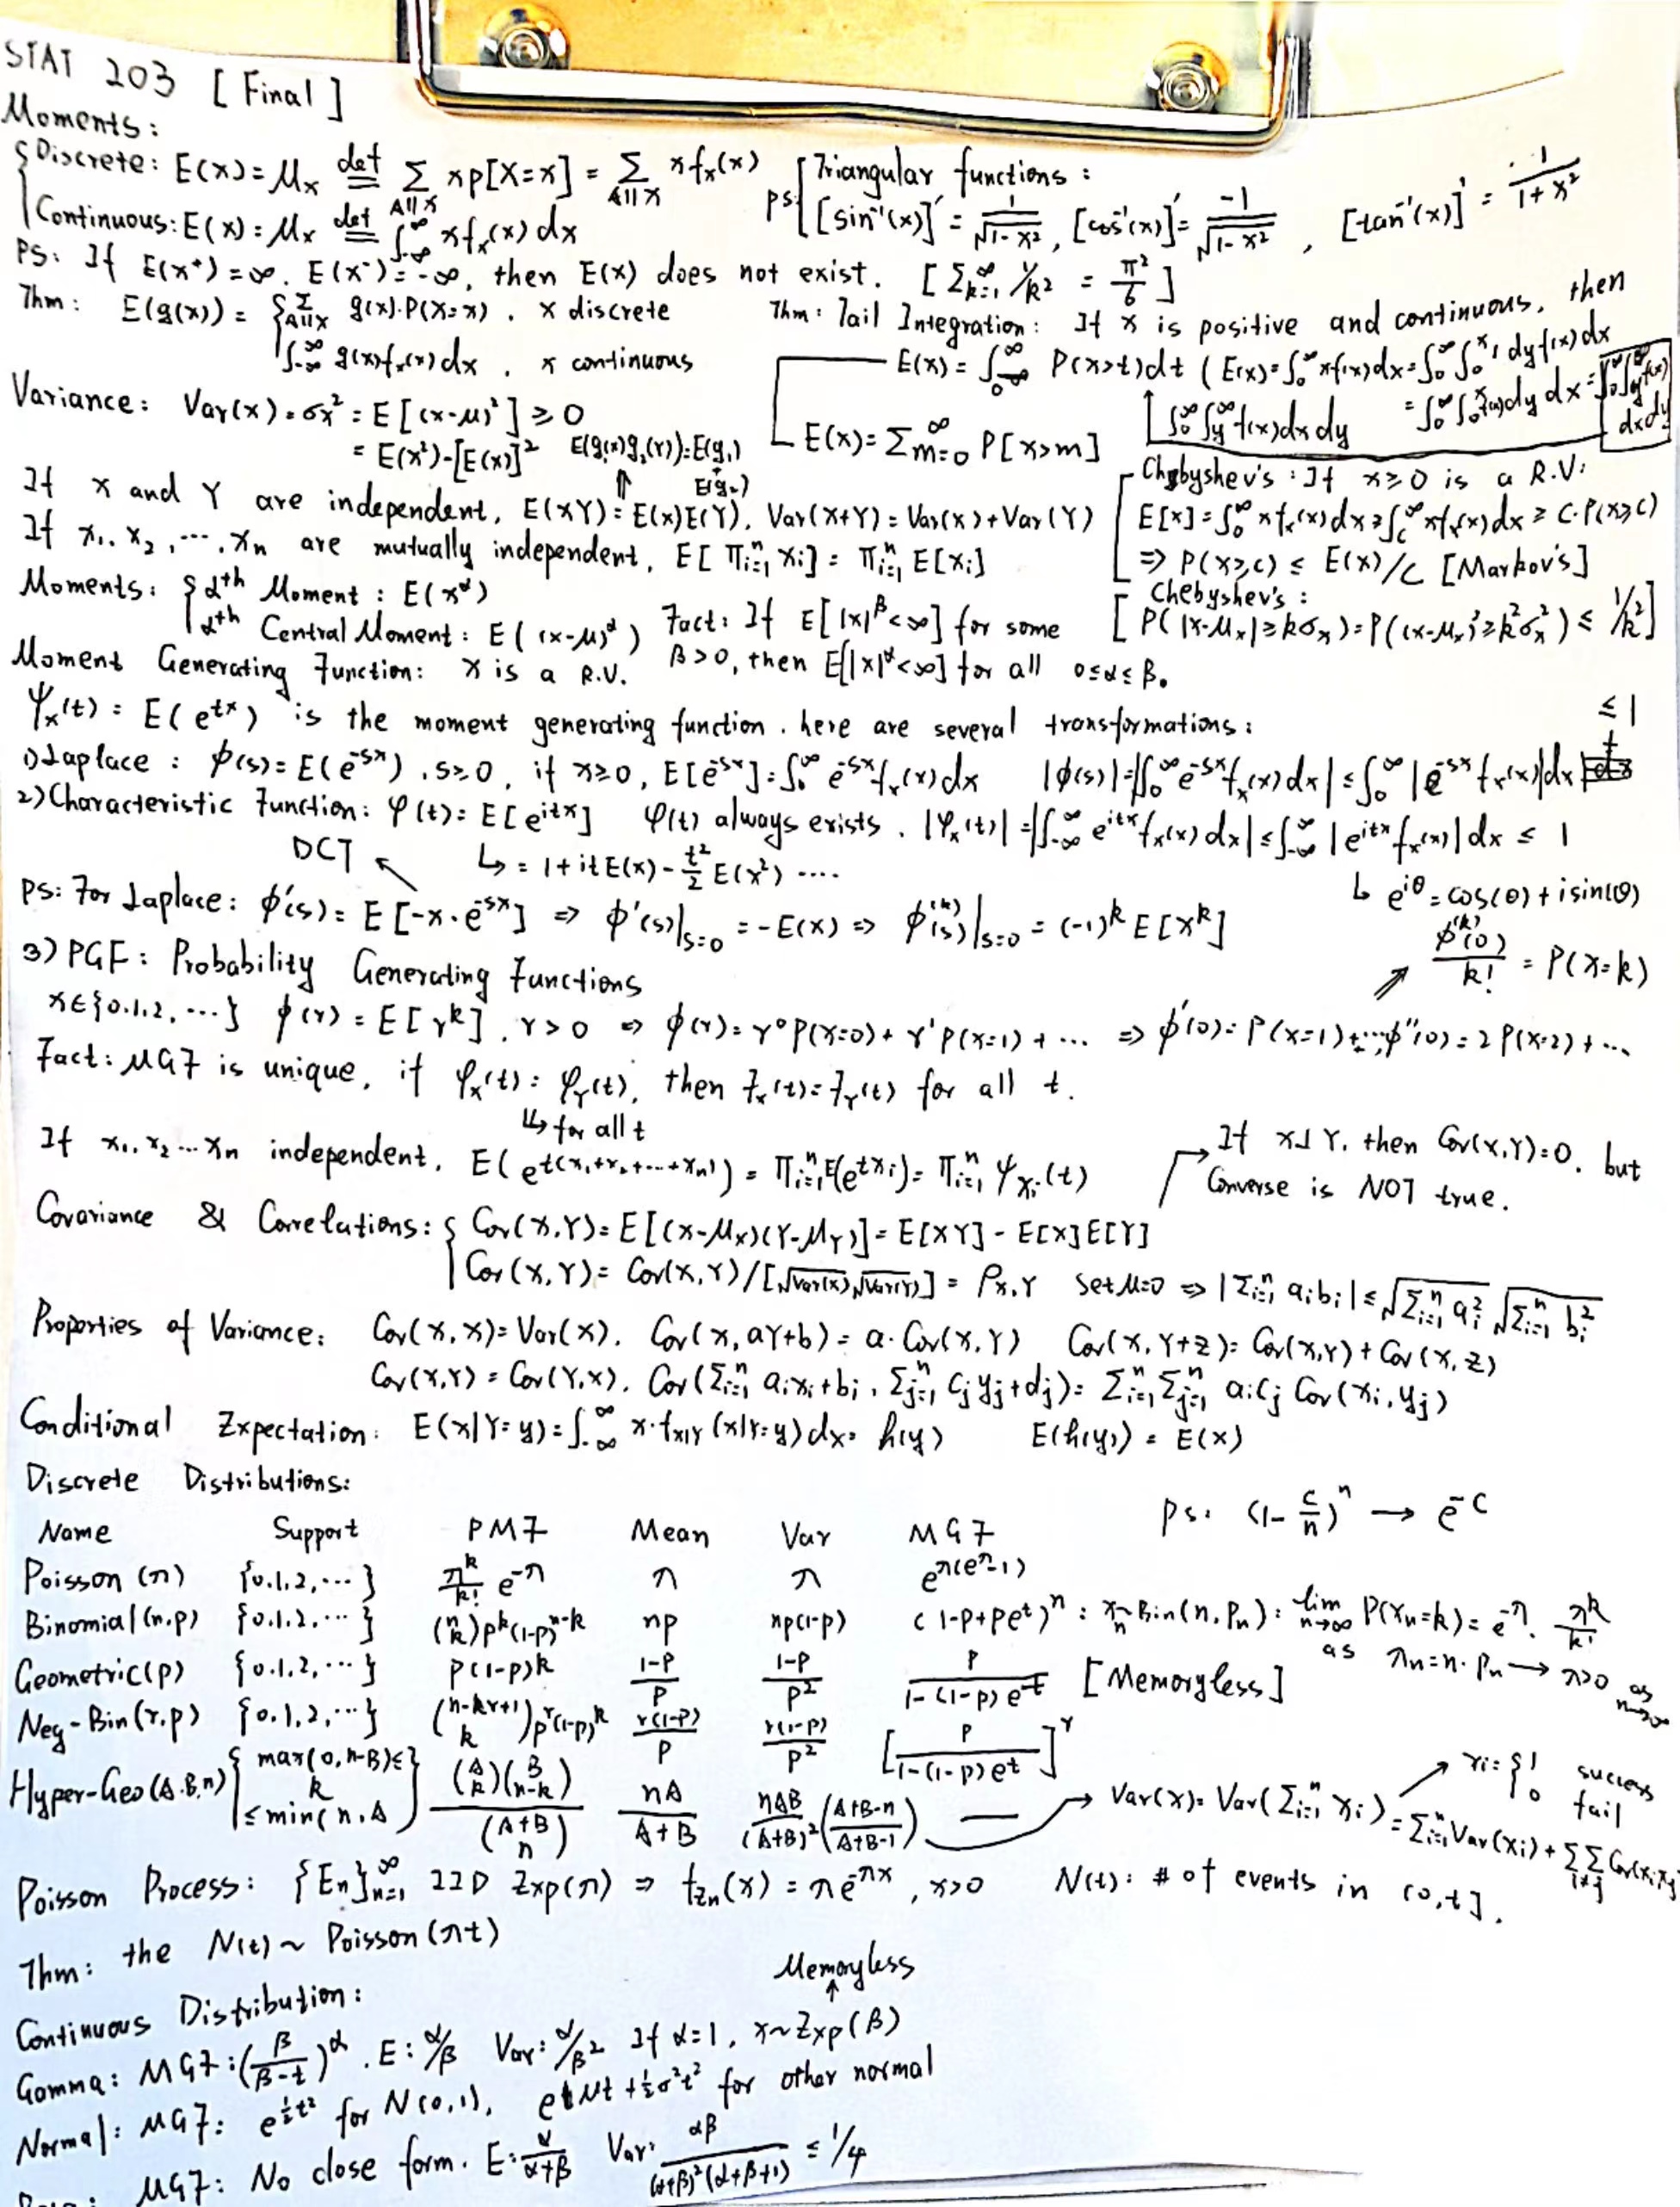 STAT 203 [Final]
Moments:
Discrete: E(x)=μx def= Σ_{All x} xp[X=x] = Σ_{All x} x fx(x)
PS: Triangular functions:
[sin⁻¹(x)]' = 1/√(1-x²), [cos⁻¹(x)]' = -1/√(1-x²), [tan⁻¹(x)]' = 1/(1+x²)
Continuous: E(x)=μx def= ∫_{-∞}^{∞} x fx(x) dx
PS: If E(x⁺)=∞. E(x⁻)=-∞, then E(x) does not exist. [Σ_{k=1}^∞ 1/k² = π²/6]
Thm: E(g(x)) = { Σ_{All x} g(x)·P(X=x). x discrete
∫_{-∞}^{∞} g(x)fx(x)dx. x continuous
Thm: Tail Integration: If x is positive and continuous, then
E(x)=∫_0^∞ P(x>t)dt (E(x)=∫_0^∞ xf(x)dx=∫_0^∞∫_0^x 1 dy f(x)dx
=∫_0^∞∫_0^x f(x)dy dx = ∫_0^∞∫_y^∞ f(x) dx dy
∫_0^∞∫_y^∞ f(x)dx dy
E(x)=Σ_{m=0}^∞ P[x>m]
Variance: Var(x)=σx²=E[(x-μ)²]≥0
= E(x²)-[E(x)]² E(g₁(x)g₂(Y))=E(g₁) E(g₂)
If x and Y are independent. E(xY)=E(x)E(Y). Var(x+Y)=Var(x)+Var(Y)
If x₁.x₂,...,xn are mutually independent. E[Π_{i=1}^n xi]=Π_{i=1}^n E[xi]
Chebyshev's: If x≥0 is a R.V:
E[x]=∫_0^∞ xfx(x)dx≥∫_c^∞ xfx(x)dx≥C·P(x≥c)
⇒ P(x≥c) ≤ E(x)/C [Markov's]
Chebyshev's:
[P(|x-μx|≥kσx)=P((x-μx)²≥k²σx²) ≤ 1/k²]
Moments: { αth Moment: E(x^α)
αth Central Moment: E((x-μ)^α)
Fact: If E[|x|^β<∞] for some
β>0, then E[|x|^α<∞] for all 0≤α≤β.
Moment Generating Function: x is a R.V.
Ψx(t)=E(e^{tx}) is the moment generating function. here are several transformations:
1) Laplace: φ(s)=E(e^{-sx}).s≥0. if x≥0, E[e^{-sx}]=∫_0^∞ e^{-sx}fx(x)dx |φ(s)|=|∫_0^∞ e^{-sx}fx(x)dx|≤∫_0^∞|e^{-sx}fx(x)|dx ≤1
2) Characteristic Function: φ(t)=E[e^{itx}] φ(t) always exists. |φx(t)|=|∫_{-∞}^∞ e^{itx}fx(x)dx|≤∫_{-∞}^∞|e^{itx}fx(x)|dx ≤ 1
↳ = 1+itE(x)-t²/2 E(x²)....
↳ e^{iθ}=cos(θ)+isin(θ)
DCT
PS: For Laplace: φ'(s)=E[-x·e^{-sx}] ⇒ φ'(s)|_{s=0} = -E(x) ⇒ φ^{(k)}(s)|_{s=0}=(-1)^k E[X^k]
3) PGF: Probability Generating Functions
φ^{(k)}(0)/k! = P(X=k)
x∈{0.1.2,...} φ(r)=E[r^k]. r>0 ⇒ φ(r)=r⁰P(x=0)+r¹P(x=1)+... ⇒ φ'(0)=P(x=1)+..., φ''(0)=2P(x=2)+...
Fact: MGF is unique, if φx(t)=φY(t), then Fx(t)=FY(t) for all t.
↳ for all t
If x₁.x₂...xn independent. E(e^{t(x₁+x₂+...+xn)})=Π_{i=1}^n E(e^{txi})=Π_{i=1}^n Ψxi(t)
If x⊥Y, then Cov(x,Y)=0. but
Converse is NOT true.
Covariance & Correlations: { Cov(x,Y)=E[(x-μx)(Y-μY)]=E[XY]-E[X]E[Y]
Cor(x,Y)=Cov(x,Y)/[√Var(x)√Var(Y)] = ρx,Y Set μ=0 ⇒ |Σ_{i=1}^n aibi|≤√(Σ_{i=1}^n ai²) √(Σ_{i=1}^n bi²)
Properties of Variance: Cov(x,x)=Var(x). Cov(x,aY+b)=a·Cov(x,Y) Cov(x,Y+z)=Cov(x,Y)+Cov(x,z)
Cov(x,Y)=Cov(Y,x). Cov(Σ_{i=1}^n aixi+bi, Σ_{j=1}^n cjyj+dj)=Σ_{i=1}^nΣ_{j=1}^n aicj Cov(xi,yj)
Conditional Expectation: E(x|Y=y)=∫_{-∞}^∞ x·fx|Y(x|Y=y)dx=h(y) E(h(y))=E(x)
Discrete Distributions:
PS: (1-c/n)^n → e^{-c}
Name Support PMF Mean Var MGF
Poisson(λ) {0.1.2,...} λ^k/k! e^{-λ} λ λ e^{λ(e^λ-1)}
Binomial(n,p) {0.1.2,...} (n k)p^k(1-p)^{n-k} np np(1-p) (1-p+pe^t)^n: xn~Bin(n,Pn): lim_{n→∞} P(Xn=k)=e^{-λ}·λ^k/k!
as λn=n·Pn→λ>0 as n→∞
Geometric(p) {0.1.2,...} P(1-p)^k (1-p)/p (1-p)/p² p/(1-(1-p)e^t) [Memoryless]
Neg-Bin(r,p) {0.1.2,...} (n-kr+1 k)p^r(1-p)^k r(1-p)/p r(1-p)/p² [p/(1-(1-p)e^t)]^r
Hyper-Geo(A.B,n) {max(0,n-B)≤ k ≤min(n,A} (A k)(B n-k)/(A+B n) nA/(A+B) nAB/(A+B)² ((A+B-n)/(A+B-1)) → Var(x)=Var(Σ_{i=1}^n xi)=Σ_{i=1}^n Var(xi)+ΣΣ_{i≠j} Cov(xi,xj)
xi={1 success
0 fail
Poisson Process: {En}_{n=1}^∞ IID Exp(λ) ⇒ fEn(x)=λe^{-λx}, x>0 N(t): # of events in (0,t].
Thm: the N(t)~Poisson(λt)
Continuous Distribution:
Memoryless
Gamma: MGF:(β/(β-t))^α. E:α/β Var:α/β² If α=1, x~Exp(β)
Normal: MGF: e^{½t²} for N(0,1), e^{μt+½σ²t²} for other normal
MGF: No close form. E:α/(α+β) Var: αβ/((α+β)²(α+β+1)) ≤ 1/4